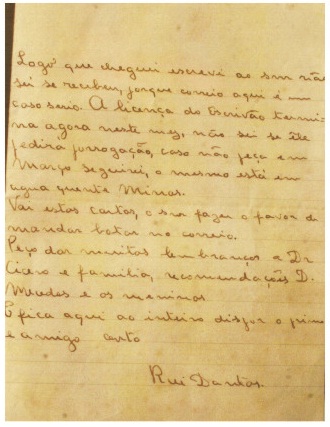 Logo que cheguei escrevi ao snr não
sei se recibeu, porque correio aqui é um
caso serio. A licença do Escrivão termi-
na agora neste mes, não sei se êle
pedirá porrogação, caso não peça em
Março seguirei, o mesmo está em
agua quente Minas.
Vai estas cartas, o snr fazer o favor de
mandar botar no correio.
Peço dar muitas lembranças a Dr
Cicero e familia, recomendações D.
e os meninos.
E fica aqui ao inteiro dispor o primo
e amigo certo
Rui Dantas.